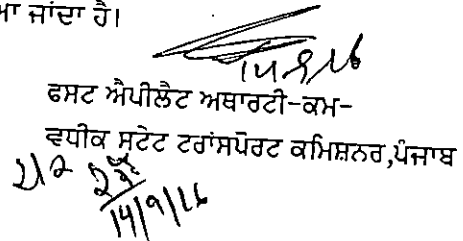 ਆ ਜਾਂਦਾ ਹੈ।
ਫਸਟ ਐਪੀਲੈਟ ਅਥਾਰਟੀ-ਕਮ-
ਵਧੀਕ ਸਟੇਟ ਟਰਾਂਸਪੋਰਟ ਕਮਿਸ਼ਨਰ,ਪੰਜਾਬ
14/9/16